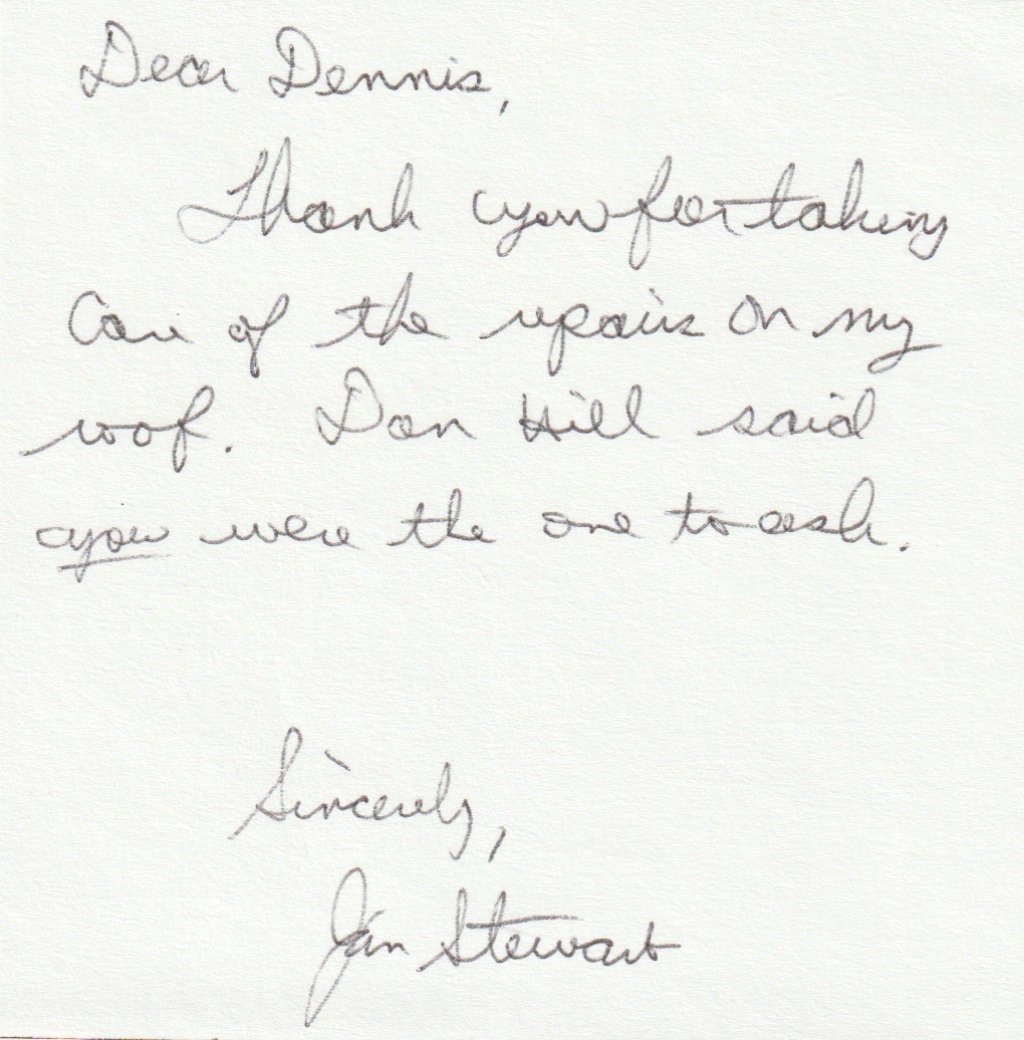 Dear Dennis,
Thank you for taking
Care of the repairs on my
roof. Dan Hill said
you were the one to ask.
Sincerely,
Jan Stewart